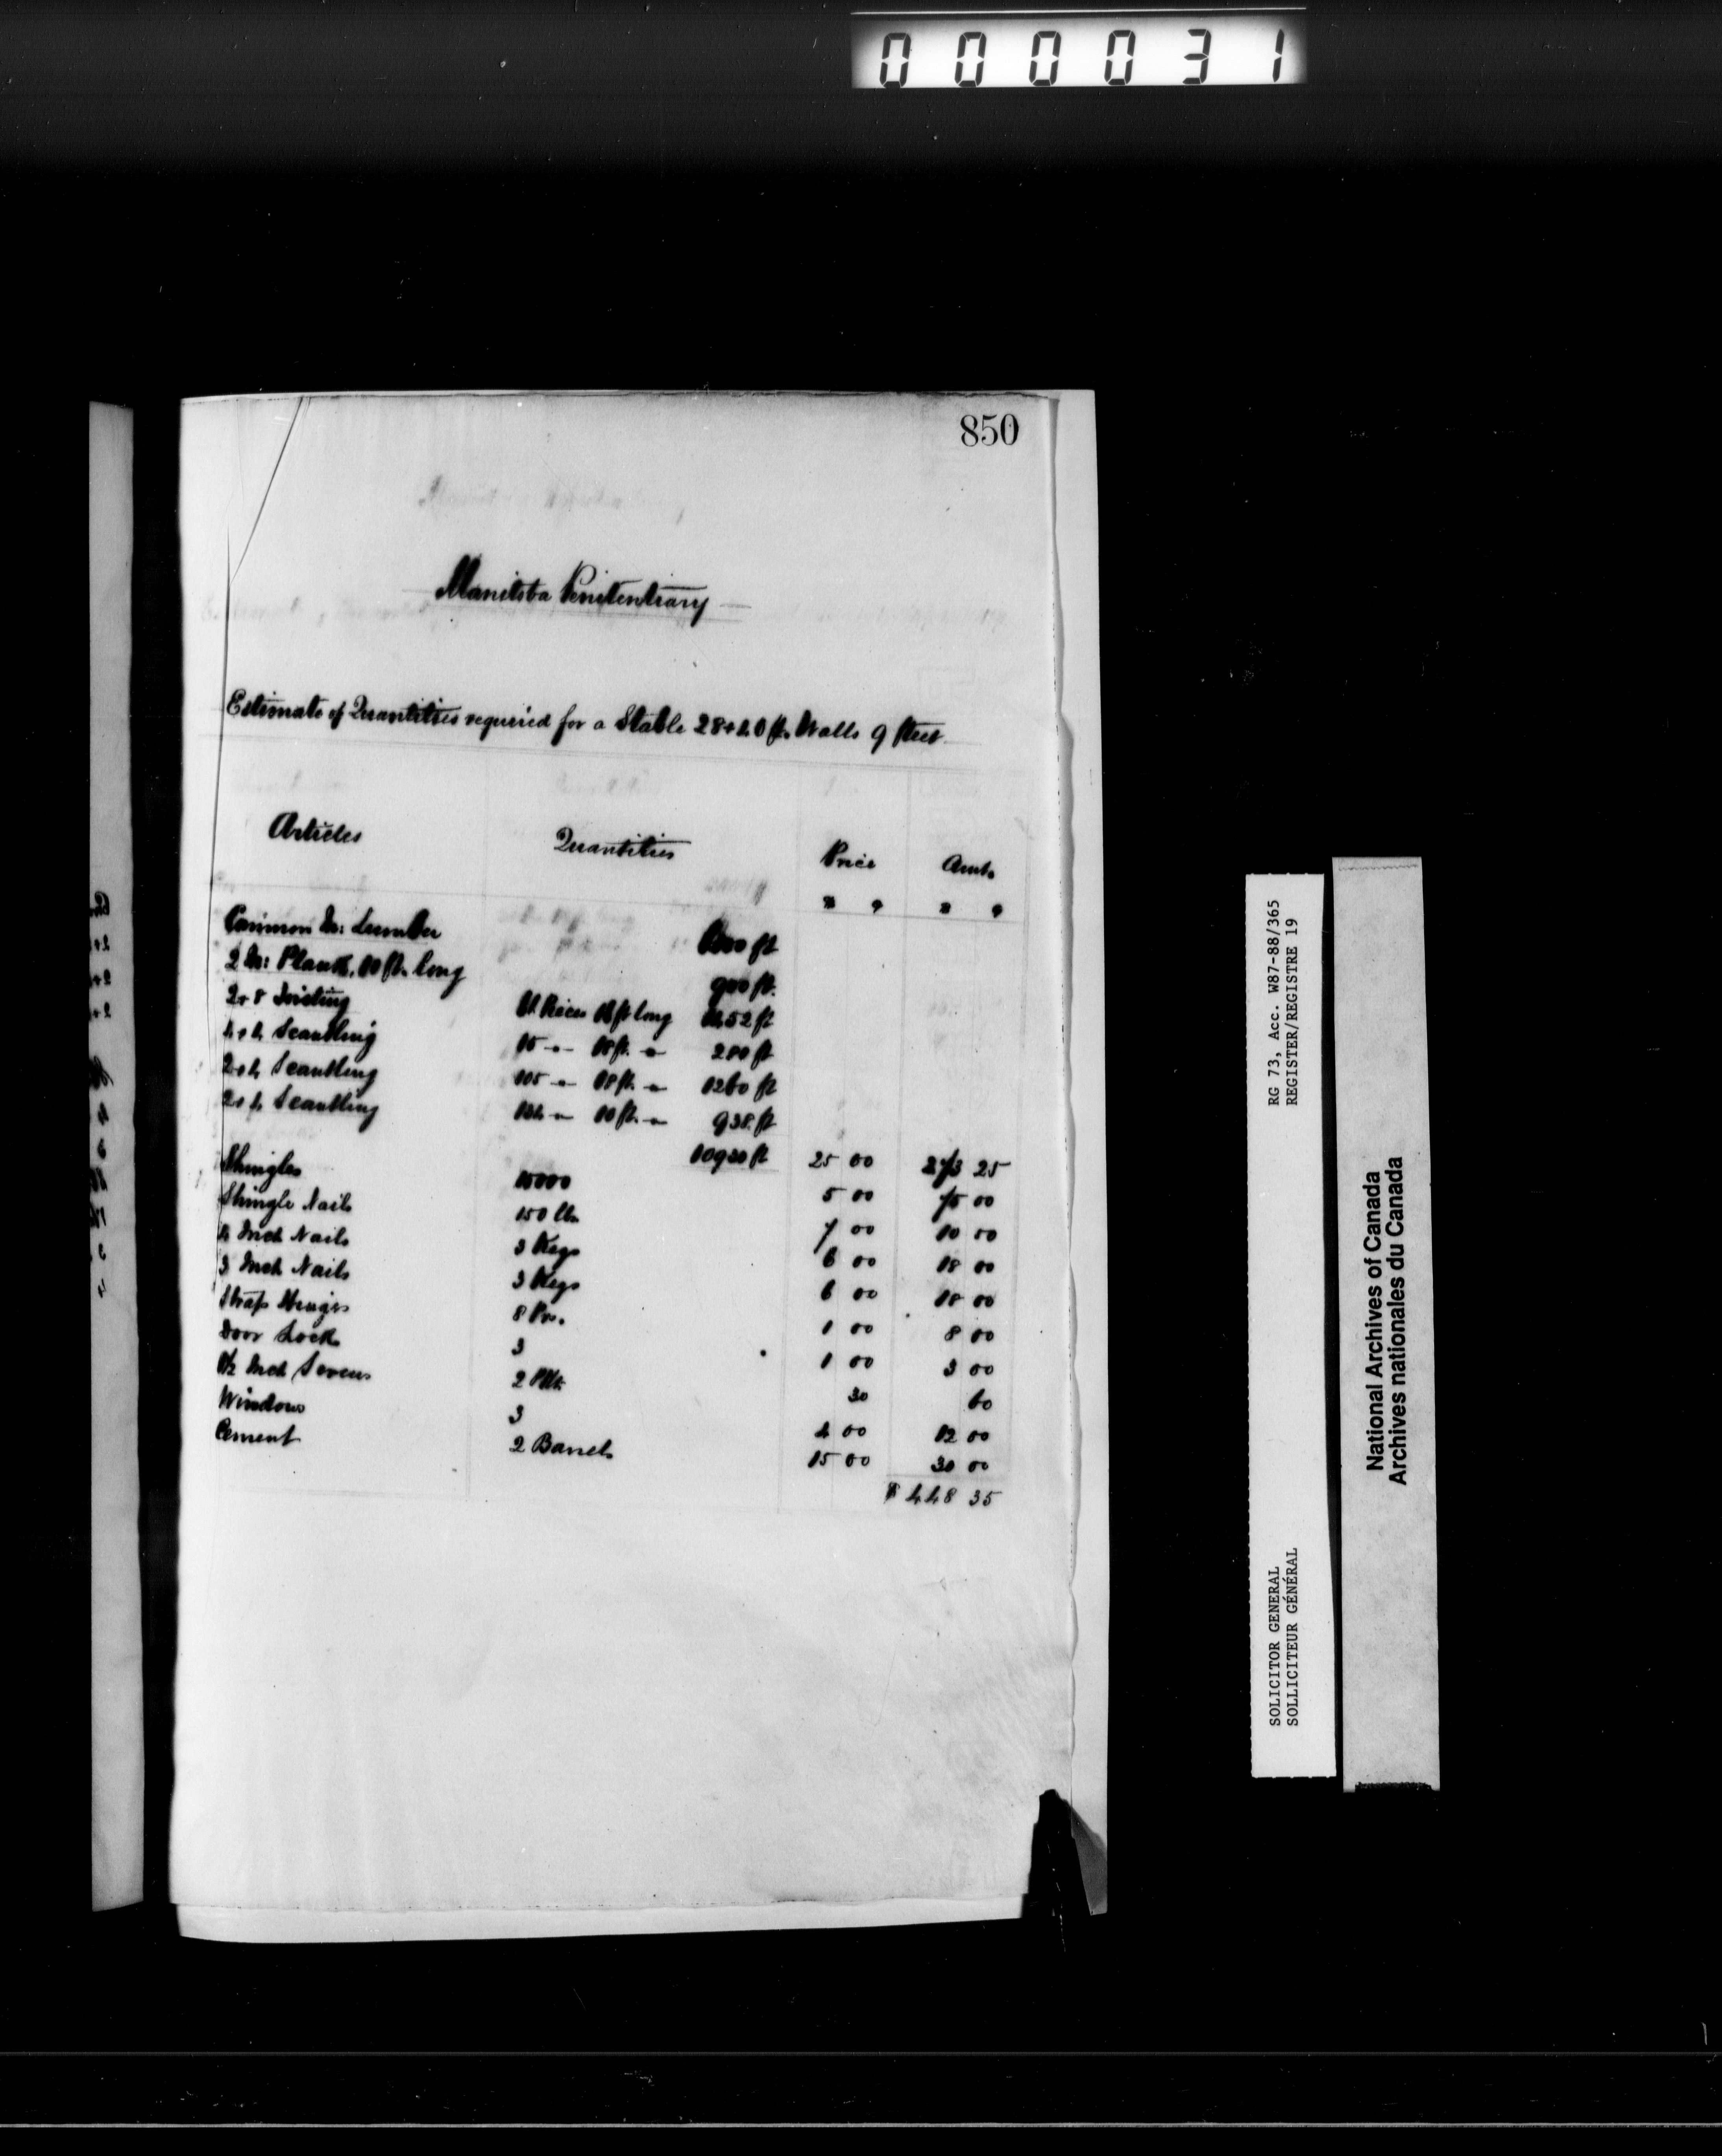 000031
850
Manitoba Penitentiary
Estimate of Quantities required for a Stable 28+40 ft. Walls 9 feet
Articles Quantities Price Amt.
$ ¢ $ ¢
Common In: Lumber 6000 ft
2 In: Plank, 10 ft. long 900 ft.
2+8 Joisting Pieces ft long 1452 ft
4+4 Scantling 15 " ft. " 280 ft
2+4 Scantling 105 " 18 ft. " 1260 ft
2+4 Scantling 134 " 10 ft. " 938 ft
10930 ft 25 00 273 25
Shingles 15000 5 00 75 00
Shingle Nails 150 lbs 7 00 10 50
4 Inch Nails 3 Kegs 6 00 18 00
3 Inch Nails 3 Kegs 6 00 18 00
Strap Hinges 8 Prs. 1 00 8 00
Door Locks 3 1 00 3 00
1 1/2 Inch Screws 2 Pkts 30 60
Windows 3 4 00 12 00
Cement 2 Barrels 15 00 30 00
$ 448 35
RG 73, Acc. W87-88/365
REGISTER/REGISTRE 19
SOLICITOR GENERAL
SOLLICITEUR GÉNÉRAL
National Archives of Canada
Archives nationales du Canada